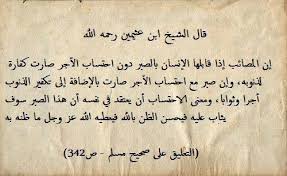 قال الشيخ ابن عثيمين رحمه الله
إن المصائب إذا قابلها الإنسان بالصبر دون احتساب الأجر صارت كفارة
لذنوبه، وإن صبر مع احتساب الأجر صارت بالإضافة إلى تكفير الذنوب
أجرا وثوابا، ومعنى الاحتساب أن يعتقد في نفسه أن هذا الصبر سوف
يثاب عليه فيحسن الظن بالله فيعطيه الله عز وجل ما ظنه به
(التعليق على صحيح مسلم - ص342)